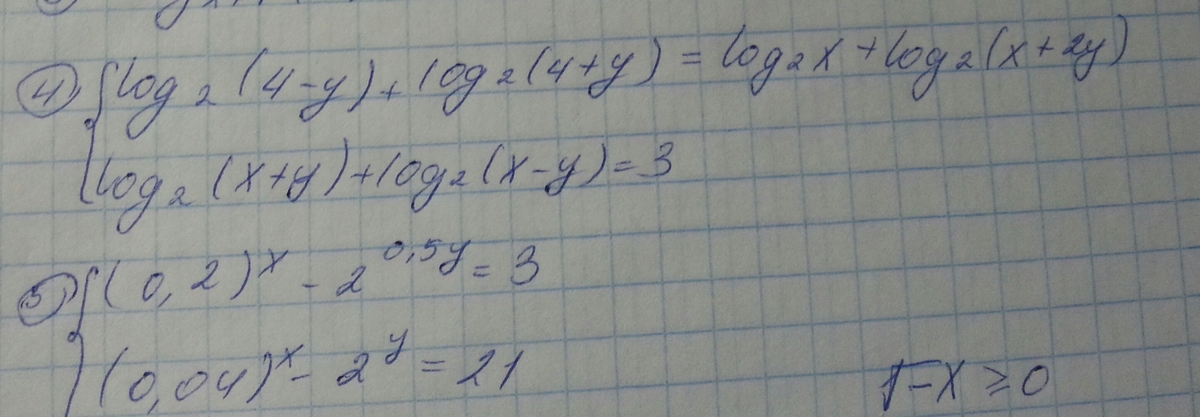 4) log₂(4-y)+log₂(4+y)=log₂x+log₂(x+2y)
log₂(x+y)+log₂(x-y)=3
5) (0,2)^x - 2^0,5y = 3
(0,04)^x - 2^y = 21
1-x≥0